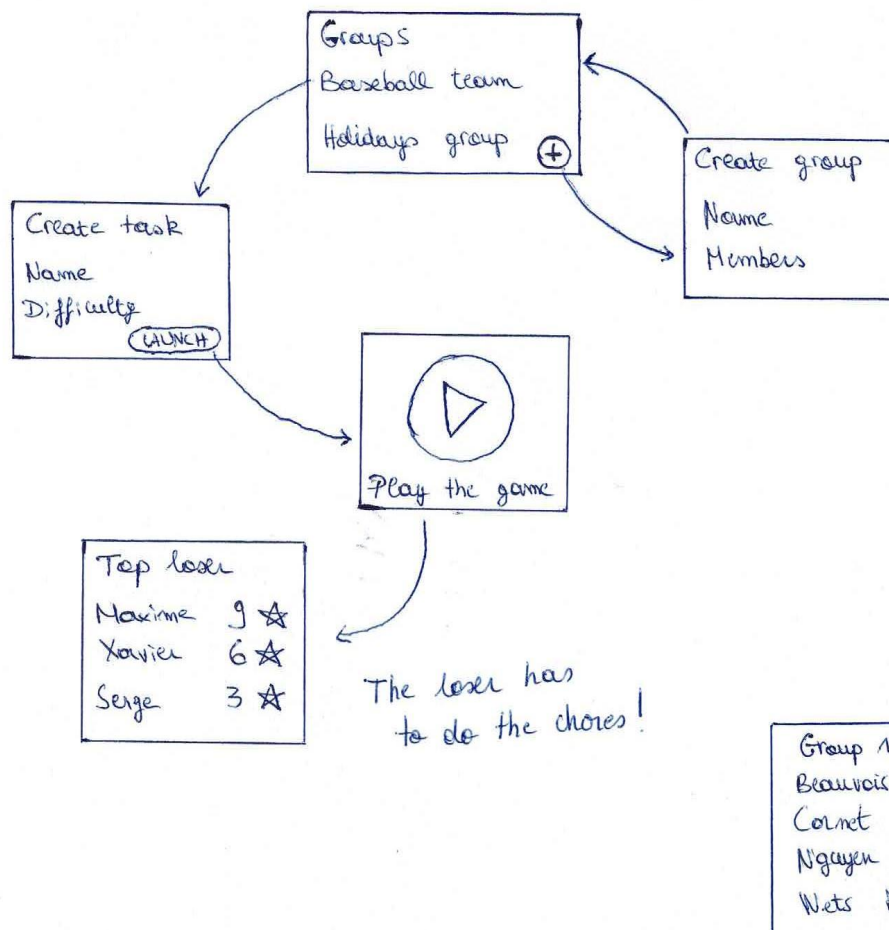 Groups
Baseball team
Holidays group +
Create group
Name
Members
Create task
Name
Difficulty
LAUNCH
Play the game
Top loser
Maxime 9 ☆
Xavier 6 ☆
Serge 3 ☆
The loser has
to do the chores!
Group
Beauvois
Cornet
N'guyen
Wets